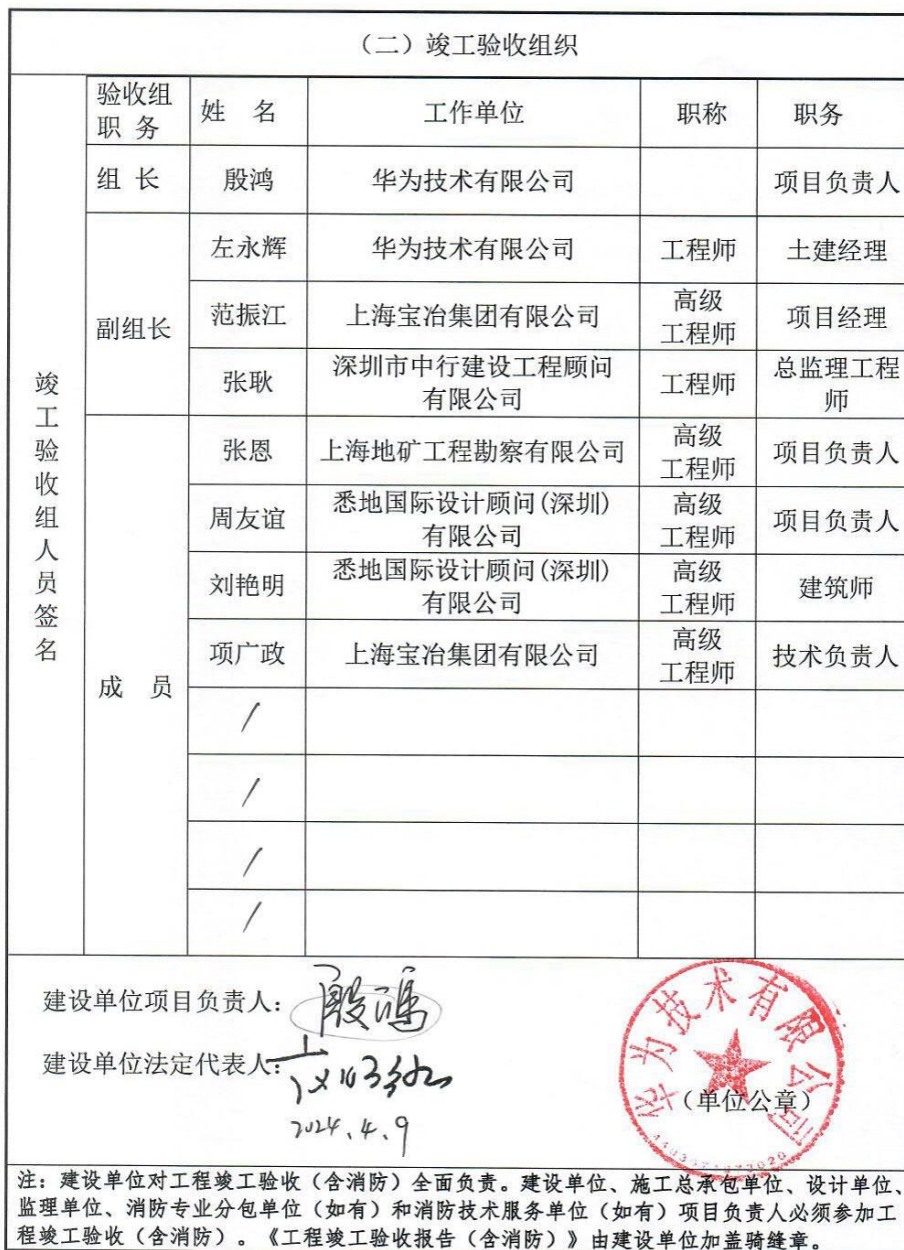 （二）竣工验收组织
竣工验收组人员签名
验收组
职 务
姓 名
工作单位
职称
职务
组 长
殷鸿
华为技术有限公司
项目负责人
副组长
左永辉
华为技术有限公司
工程师
土建经理
范振江
上海宝冶集团有限公司
高级
工程师
项目经理
张耿
深圳市中行建设工程顾问
有限公司
工程师
总监理工程
师
成 员
张恩
上海地矿工程勘察有限公司
高级
工程师
项目负责人
周友谊
悉地国际设计顾问(深圳)
有限公司
高级
工程师
项目负责人
刘艳明
悉地国际设计顾问(深圳)
有限公司
高级
工程师
建筑师
项广政
上海宝冶集团有限公司
高级
工程师
技术负责人
/
/
/
/
建设单位项目负责人：殷鸿
建设单位法定代表人：
2024.4.9
华为技术有限公司
（单位公章）
注：建设单位对工程竣工验收（含消防）全面负责。建设单位、施工总承包单位、设计单位、
监理单位、消防专业分包单位（如有）和消防技术服务单位（如有）项目负责人必须参加工
程竣工验收（含消防）。《工程竣工验收报告（含消防）》由建设单位加盖骑缝章。